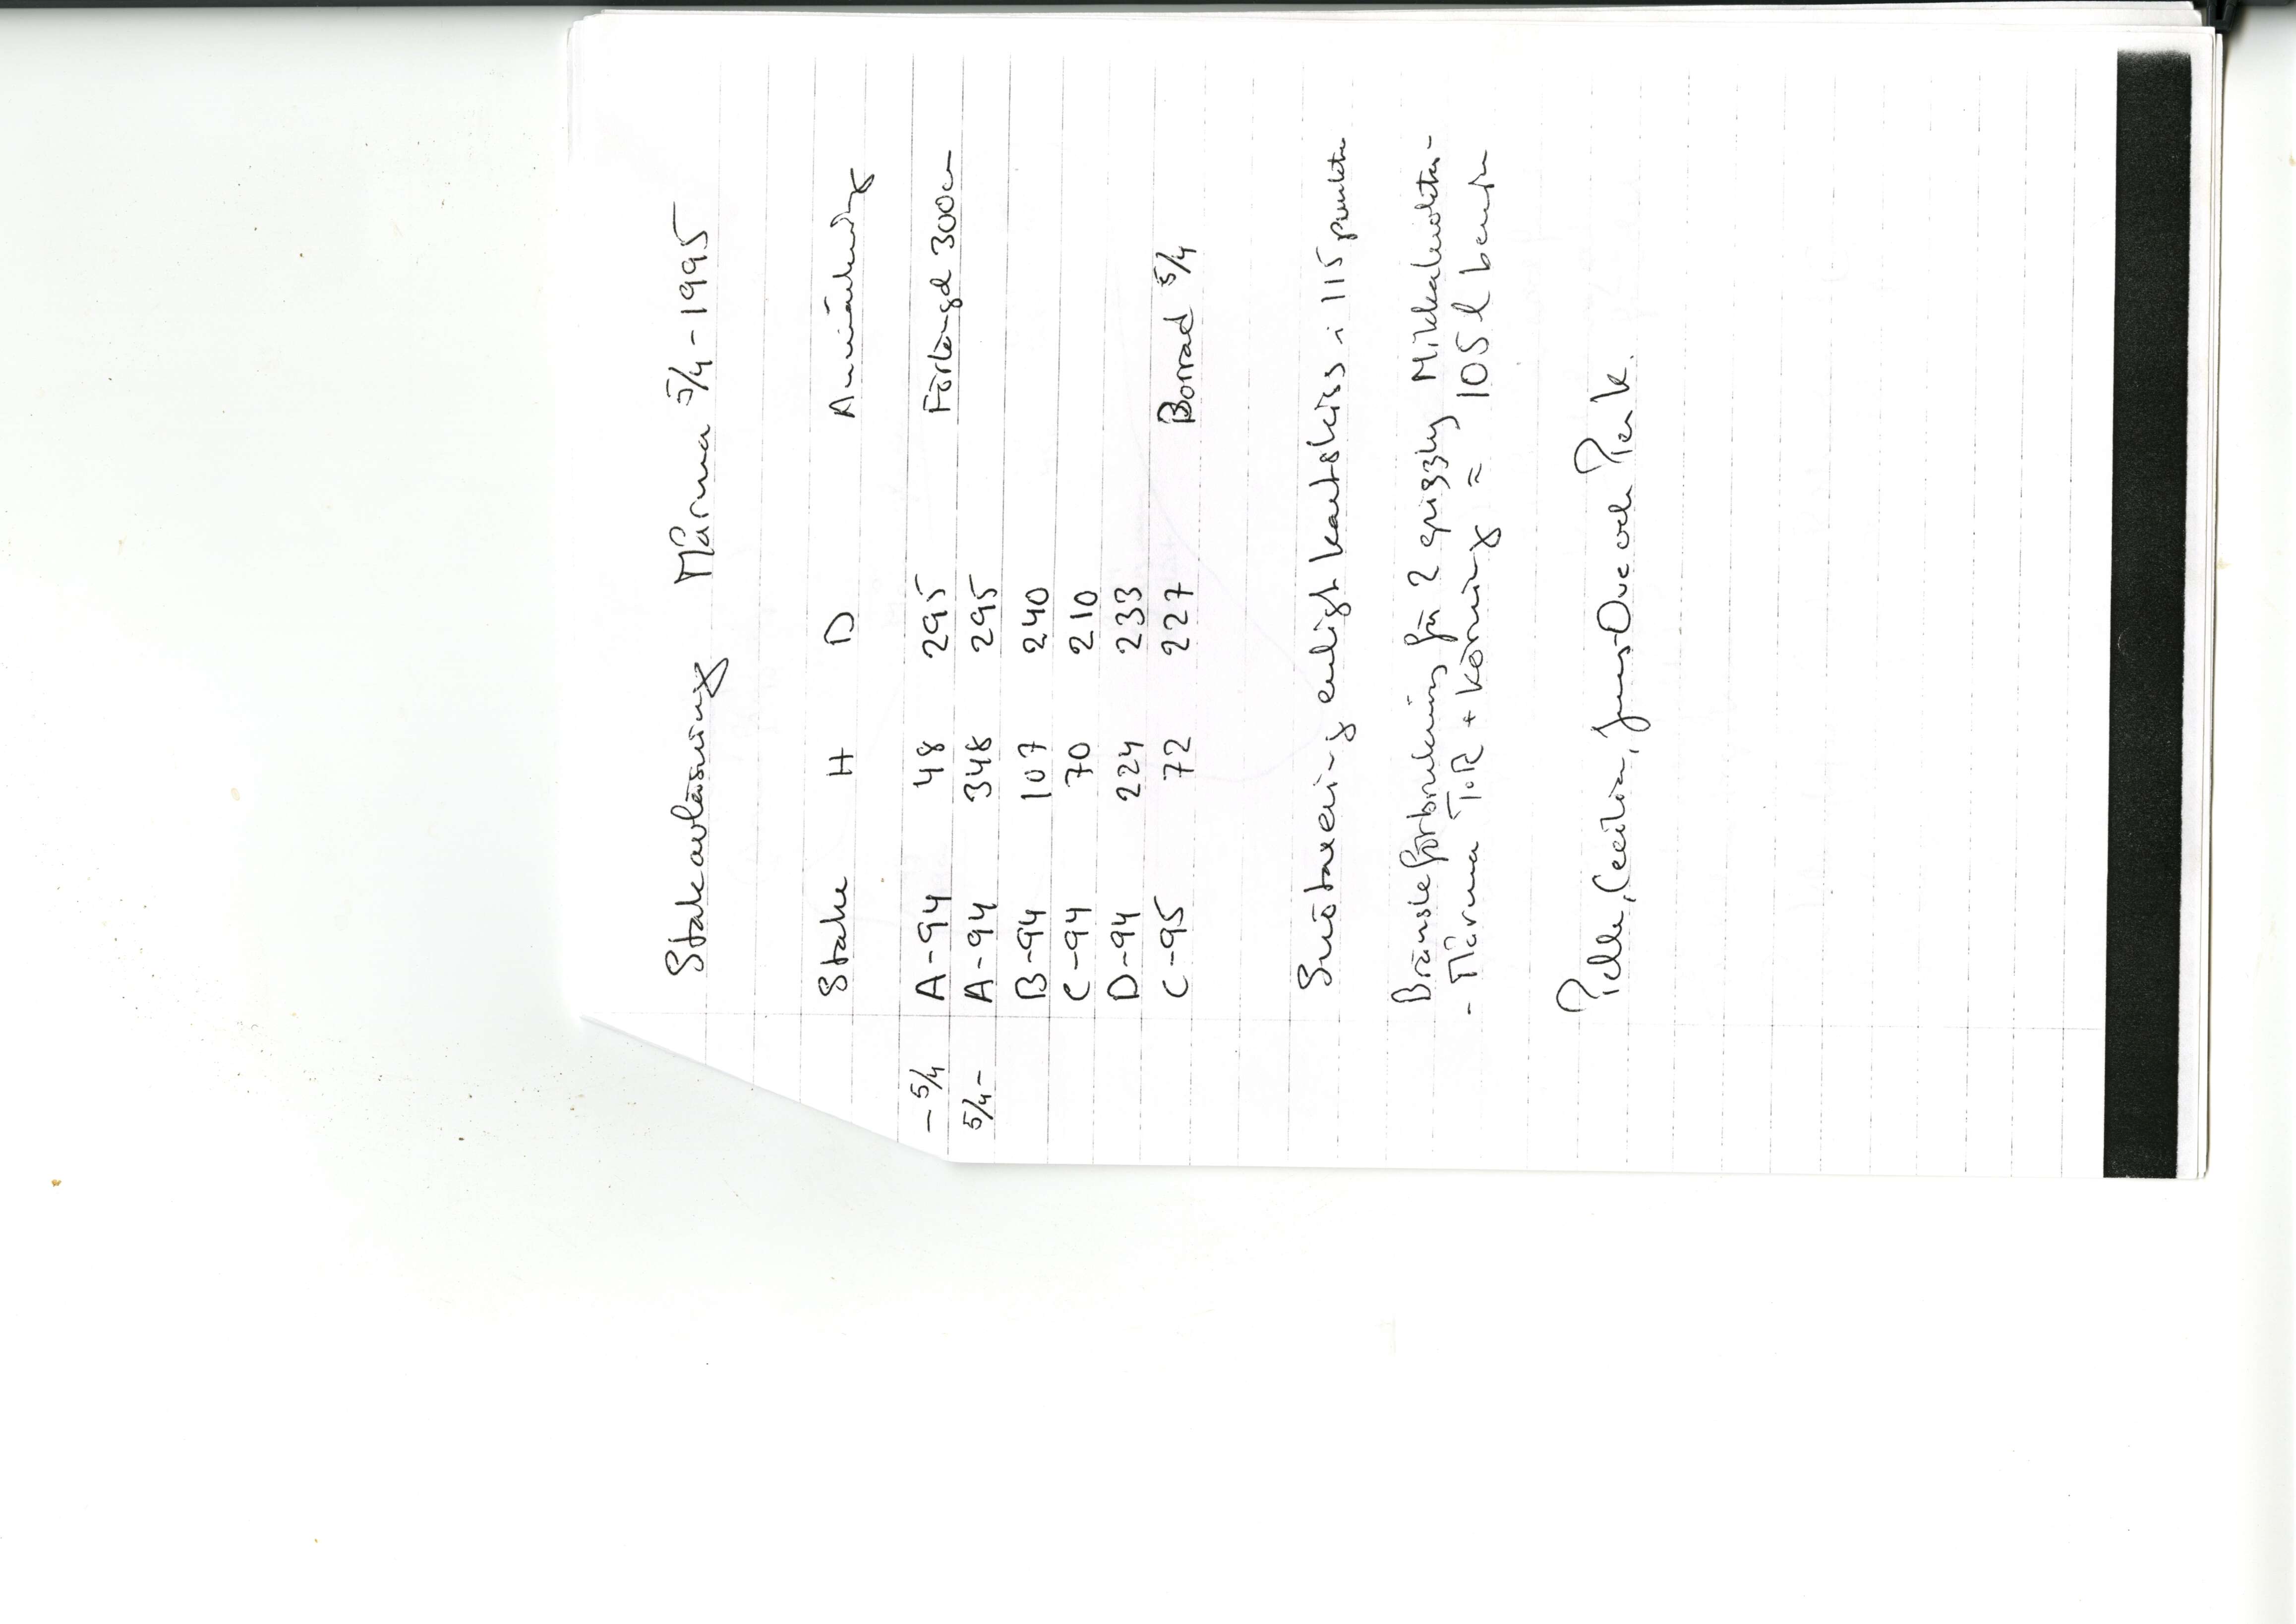 Stakavläsning Mårma 5/4-1995
Stake H D Anmärkning
- 5/4 A-94 48 295 Förlängd 300cm
5/4- A-94 348 295
B-94 107 240
C-94 70 210
D-94 224 233
C-95 72 227 Borrad 5/4
Snötaxering enligt kartskiss i 115 punkter
Bränsleförbrukning för 2 grizzly Nikkaluokta-
- Mårma T.R + körning ≈ 105 l bensin
Pelle, Cecilia, Jens-Ove och Per K.